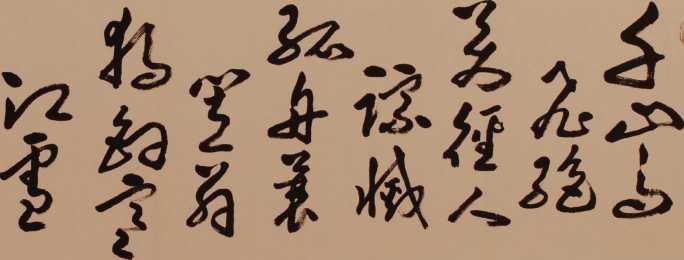 千山鳥
飛絕
萬徑人
蹤滅
孤舟蓑
笠翁
獨釣寒
江雪